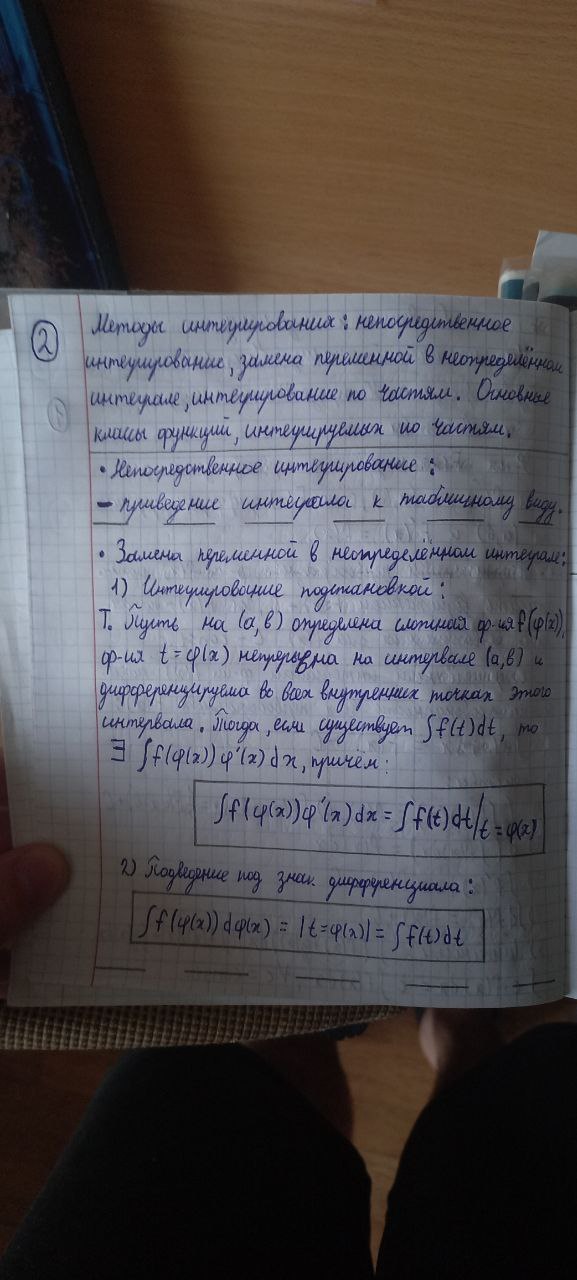 2
Методы интегрирования: непосредственное
интегрирование, замена переменной в неопределённом
интеграле, интегрирование по частям. Основные
классы функций, интегрируемых по частям.
• Непосредственное интегрирование:
– приведение интеграла к табличному виду.
• Замена переменной в неопределённом интеграле:
1) Интегрирование подстановкой:
Т. Пусть на (a, b) определена сложная ф-ия f(φ(x)),
ф-ия t = φ(x) непрерывна на интервале (a, b) и
дифференцируема во всех внутренних точках этого
интервала. Тогда, если существует ∫f(t)dt, то
∃ ∫f(φ(x))φ'(x)dx, причём:
∫f(φ(x))φ'(x)dx = ∫f(t)dt/t = φ(x)
2) Подведение под знак дифференциала:
∫f(φ(x))dφ(x) = |t=φ(x)| = ∫f(t)dt